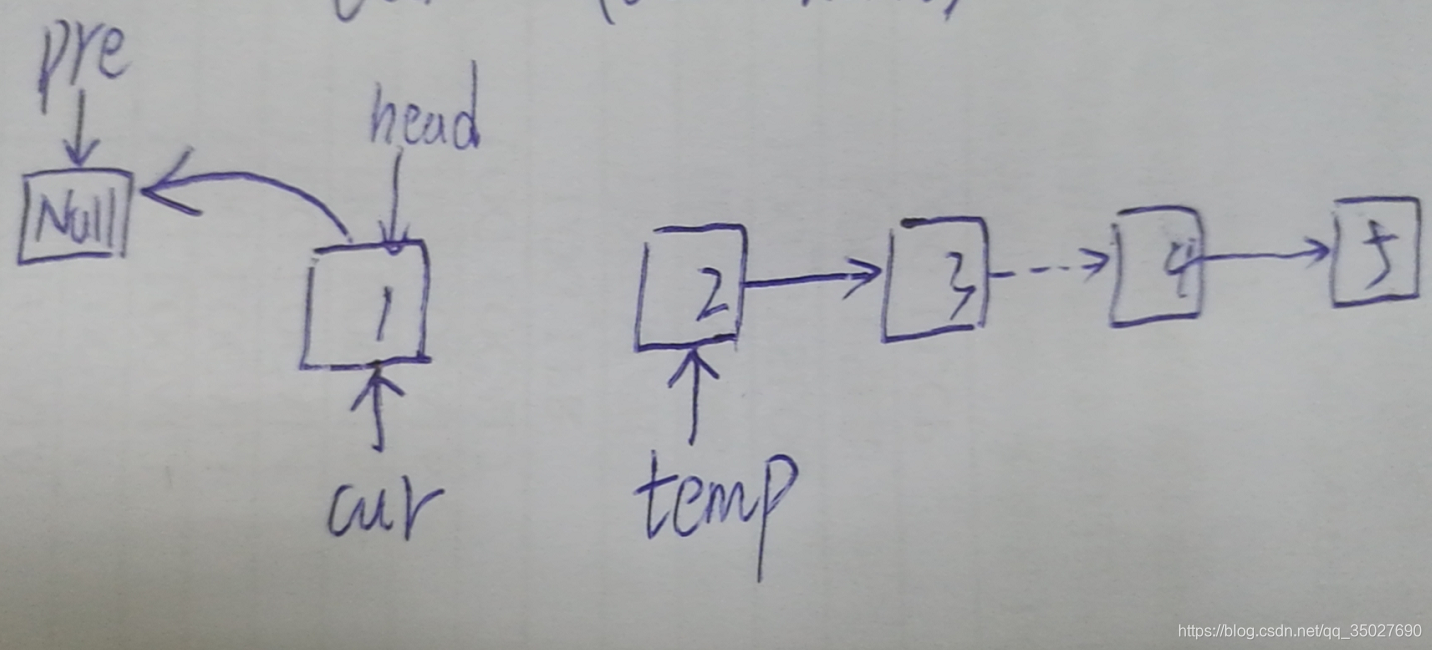 pre
head
Null
1
2
3
4
5
cur
temp
https://blog.csdn.net/qq_35027690